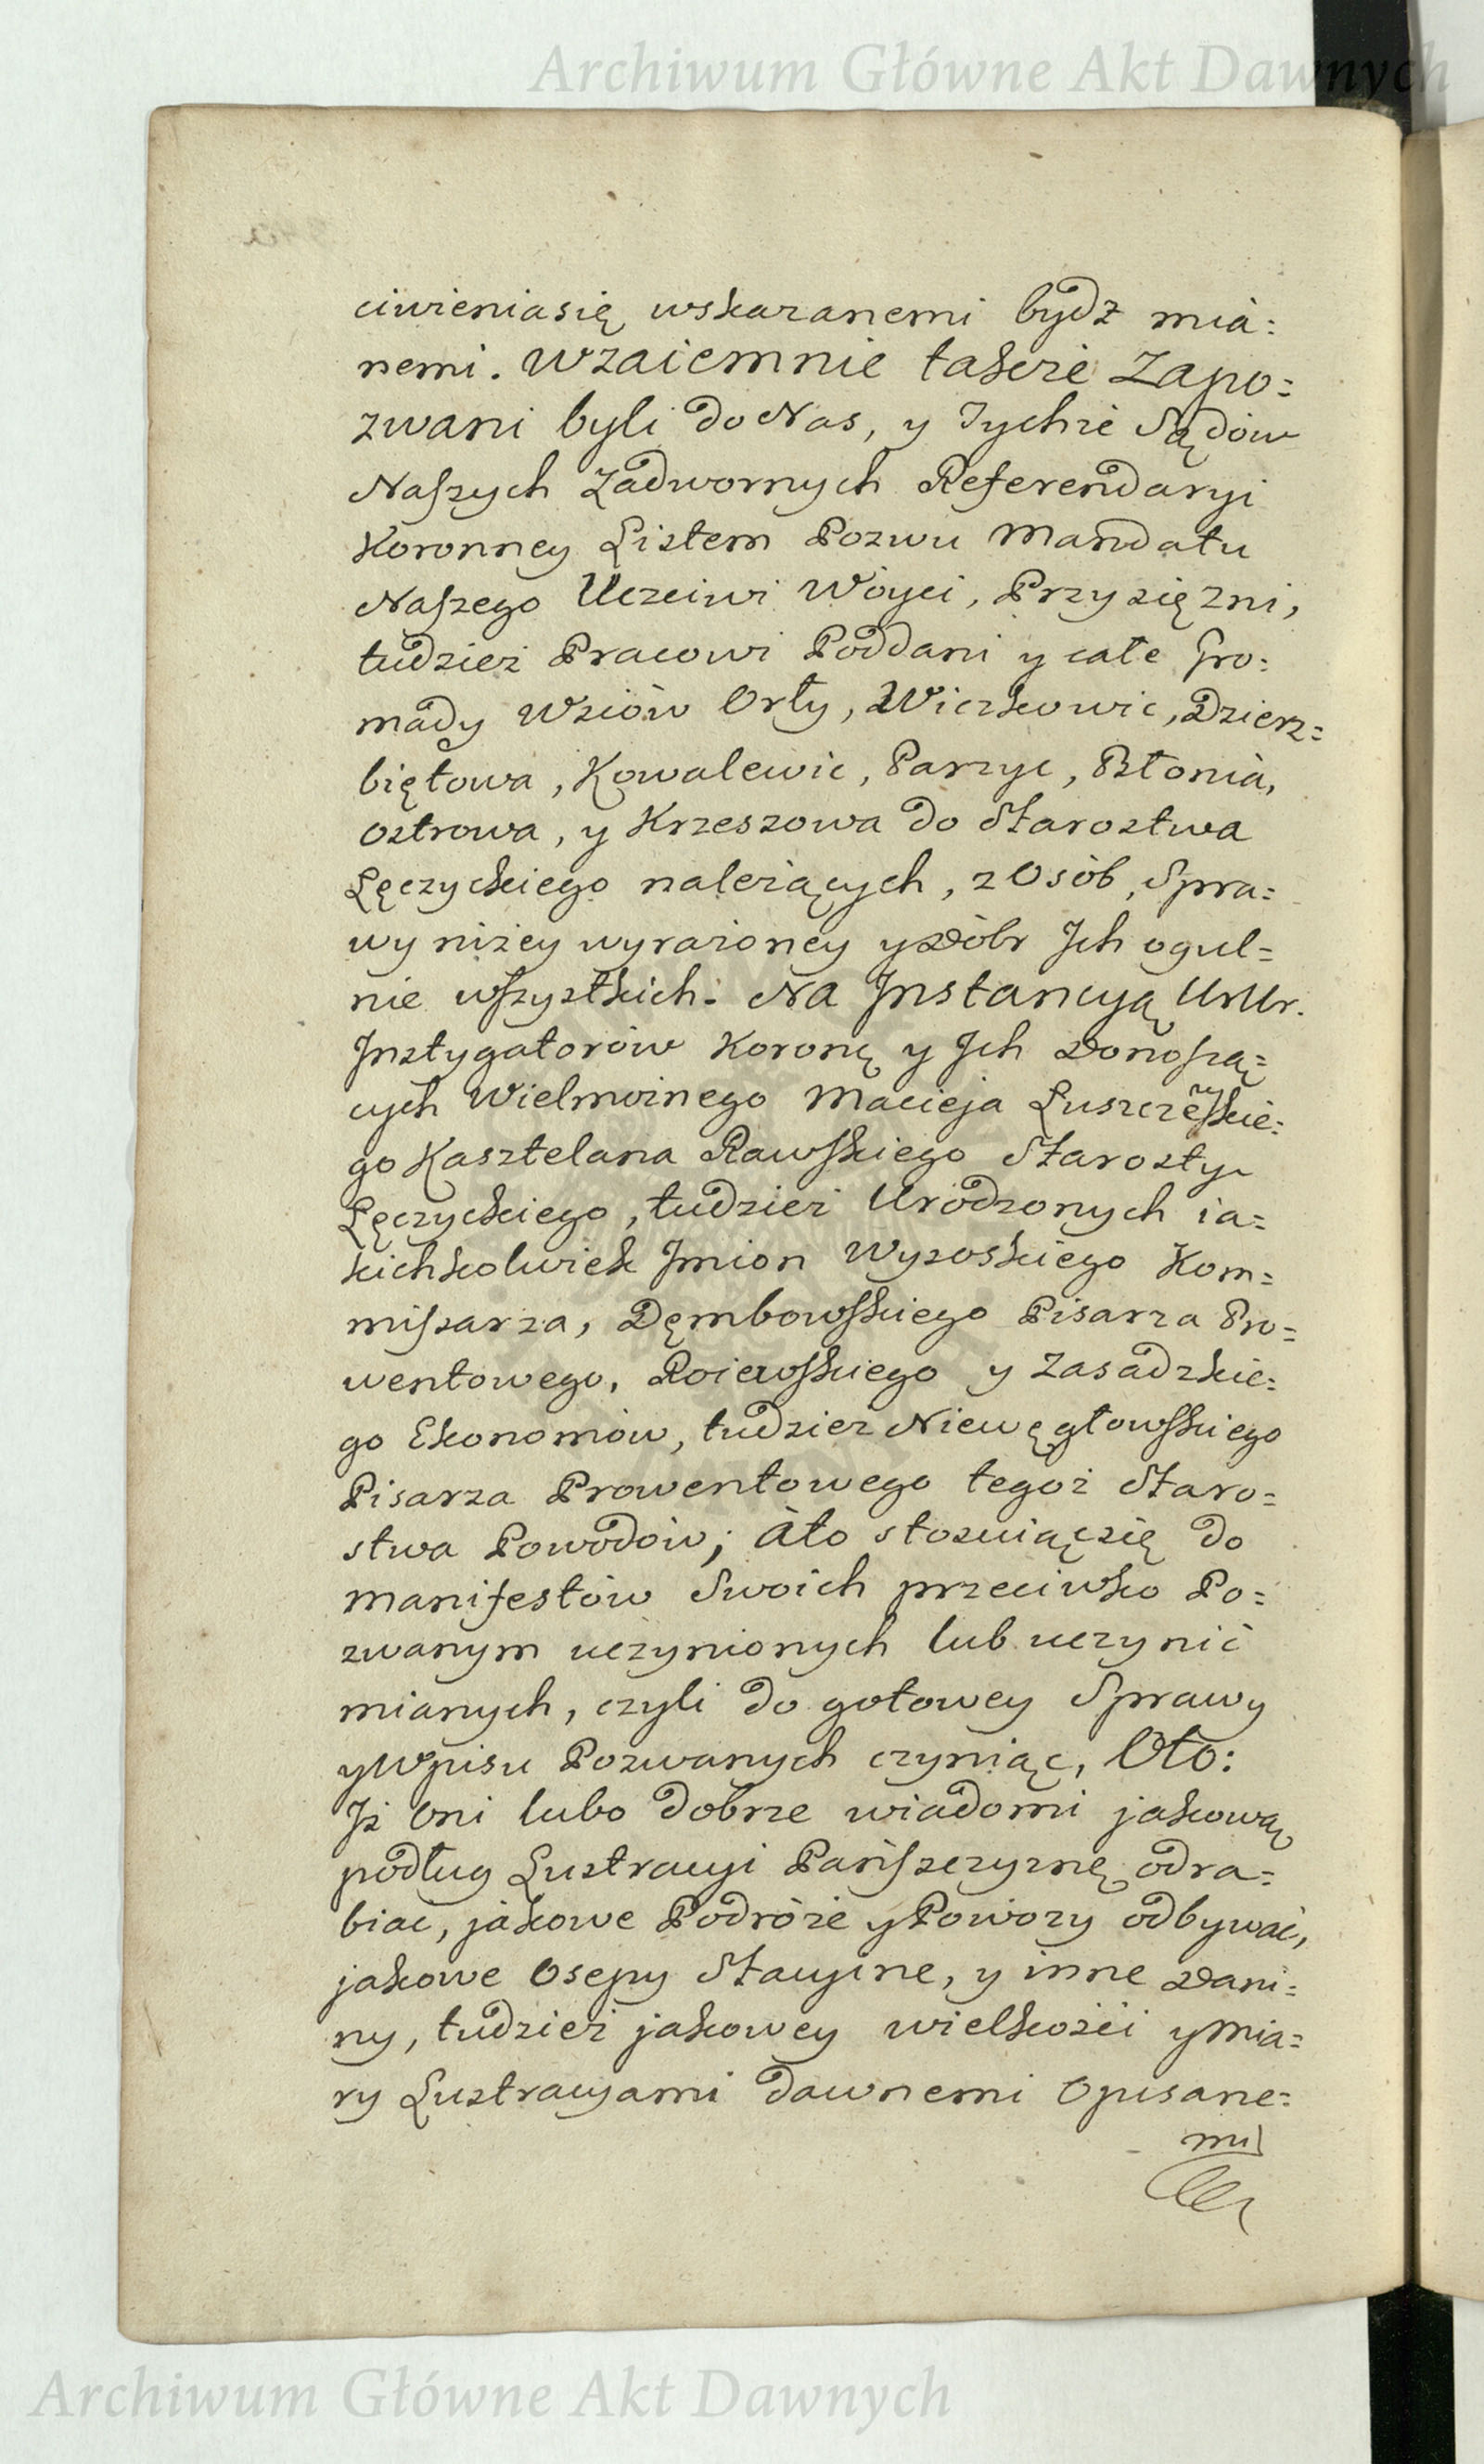 Archiwum Główne Akt Dawnych
ciwieniasię wskazanemi bydz mia:
nemi. Wzaiemnie takeże Zapo=
zwani byli do Nas, y Tychże Sądów
Naszych Zadwornych Referendaryi
Koronney Listem Pozwu Mandatu
Naszego Uczciwi Wóyci, Przysiężni,
tudzież Pracowi Poddani y całe Gro:
mady Wsiów Orły, Wiczkowic, Dzierz=
biętowa, Kowalewic, Parzyc, Błonia,
Ostrowa, y Krzeszowa do Starostwa
Łęczyckiego należących, z Osób, Spra=
wy niżey wyrażoney y Dóbr Jch ogul=
nie wszystkich: Na Jnstancyą UrUr.
Jnstygatorów Koronę y Jch Donoszą=
cych Wielmożnego Macieja Łuszczeskie=
go Kasztelana Rawskiego Starosty
Łęczyckiego, tudzież Urodzonych ia=
kichkolwiek Jmion Wysoskiego Kom=
miszarza, Dęmbowskiego Pisarza Pro=
wentowego, Roiewskiego y Zasadzkie=
go Ekonomów, tudzież Niewęgłowskiego
Pisarza Prowentowego tegoż Staro=
stwa Powodów; Ato stosuiącsię do
Manifestów Swoich przeciwko Po=
zwanym uczynionych lub uczynić
mianych, czyli do gotowey Sprawy
y Wpisu Pozwanych czyniąc, Oto:
Jż Oni lubo dobrze wiadomi jakową
podług Lustracyi Pańszczyznę odra=
biac, jakowe Podróże y Powozy odbywać,
jakowe Osepy Stacyine, y inne Dani=
ny, tudzież jakowey wielkości y Mia=
ry Lustracyami dawnemi Opisane=
mi
Archiwum Główne Akt Dawnych